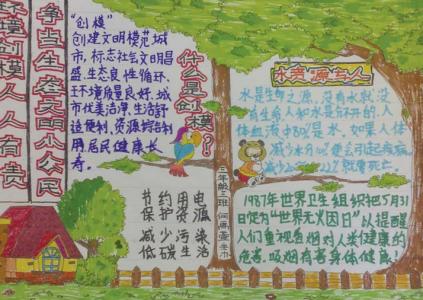 环境创模人人有责
争当生态文明小公民
"创模"
创建文明模范城
市,标志社会文明昌
盛,生态良性循环、
环境质量良好、城
市优美洁净、生活舒
适便利、资源综合利
用居民健康长
寿。
什么是创模?!
节约用电
保护资源
减少污染
低碳生活
三年级二班
水资源与人
水是生命之源,没有水就没
有生命人和水是分不开的,人
体血液中80%是水,如果人体
减少水
1987年世界卫生组织把5月31
日定为"世界无火因日"以提醒
人们重视吸烟对人类健康的
危害,吸烟有害身体健康!